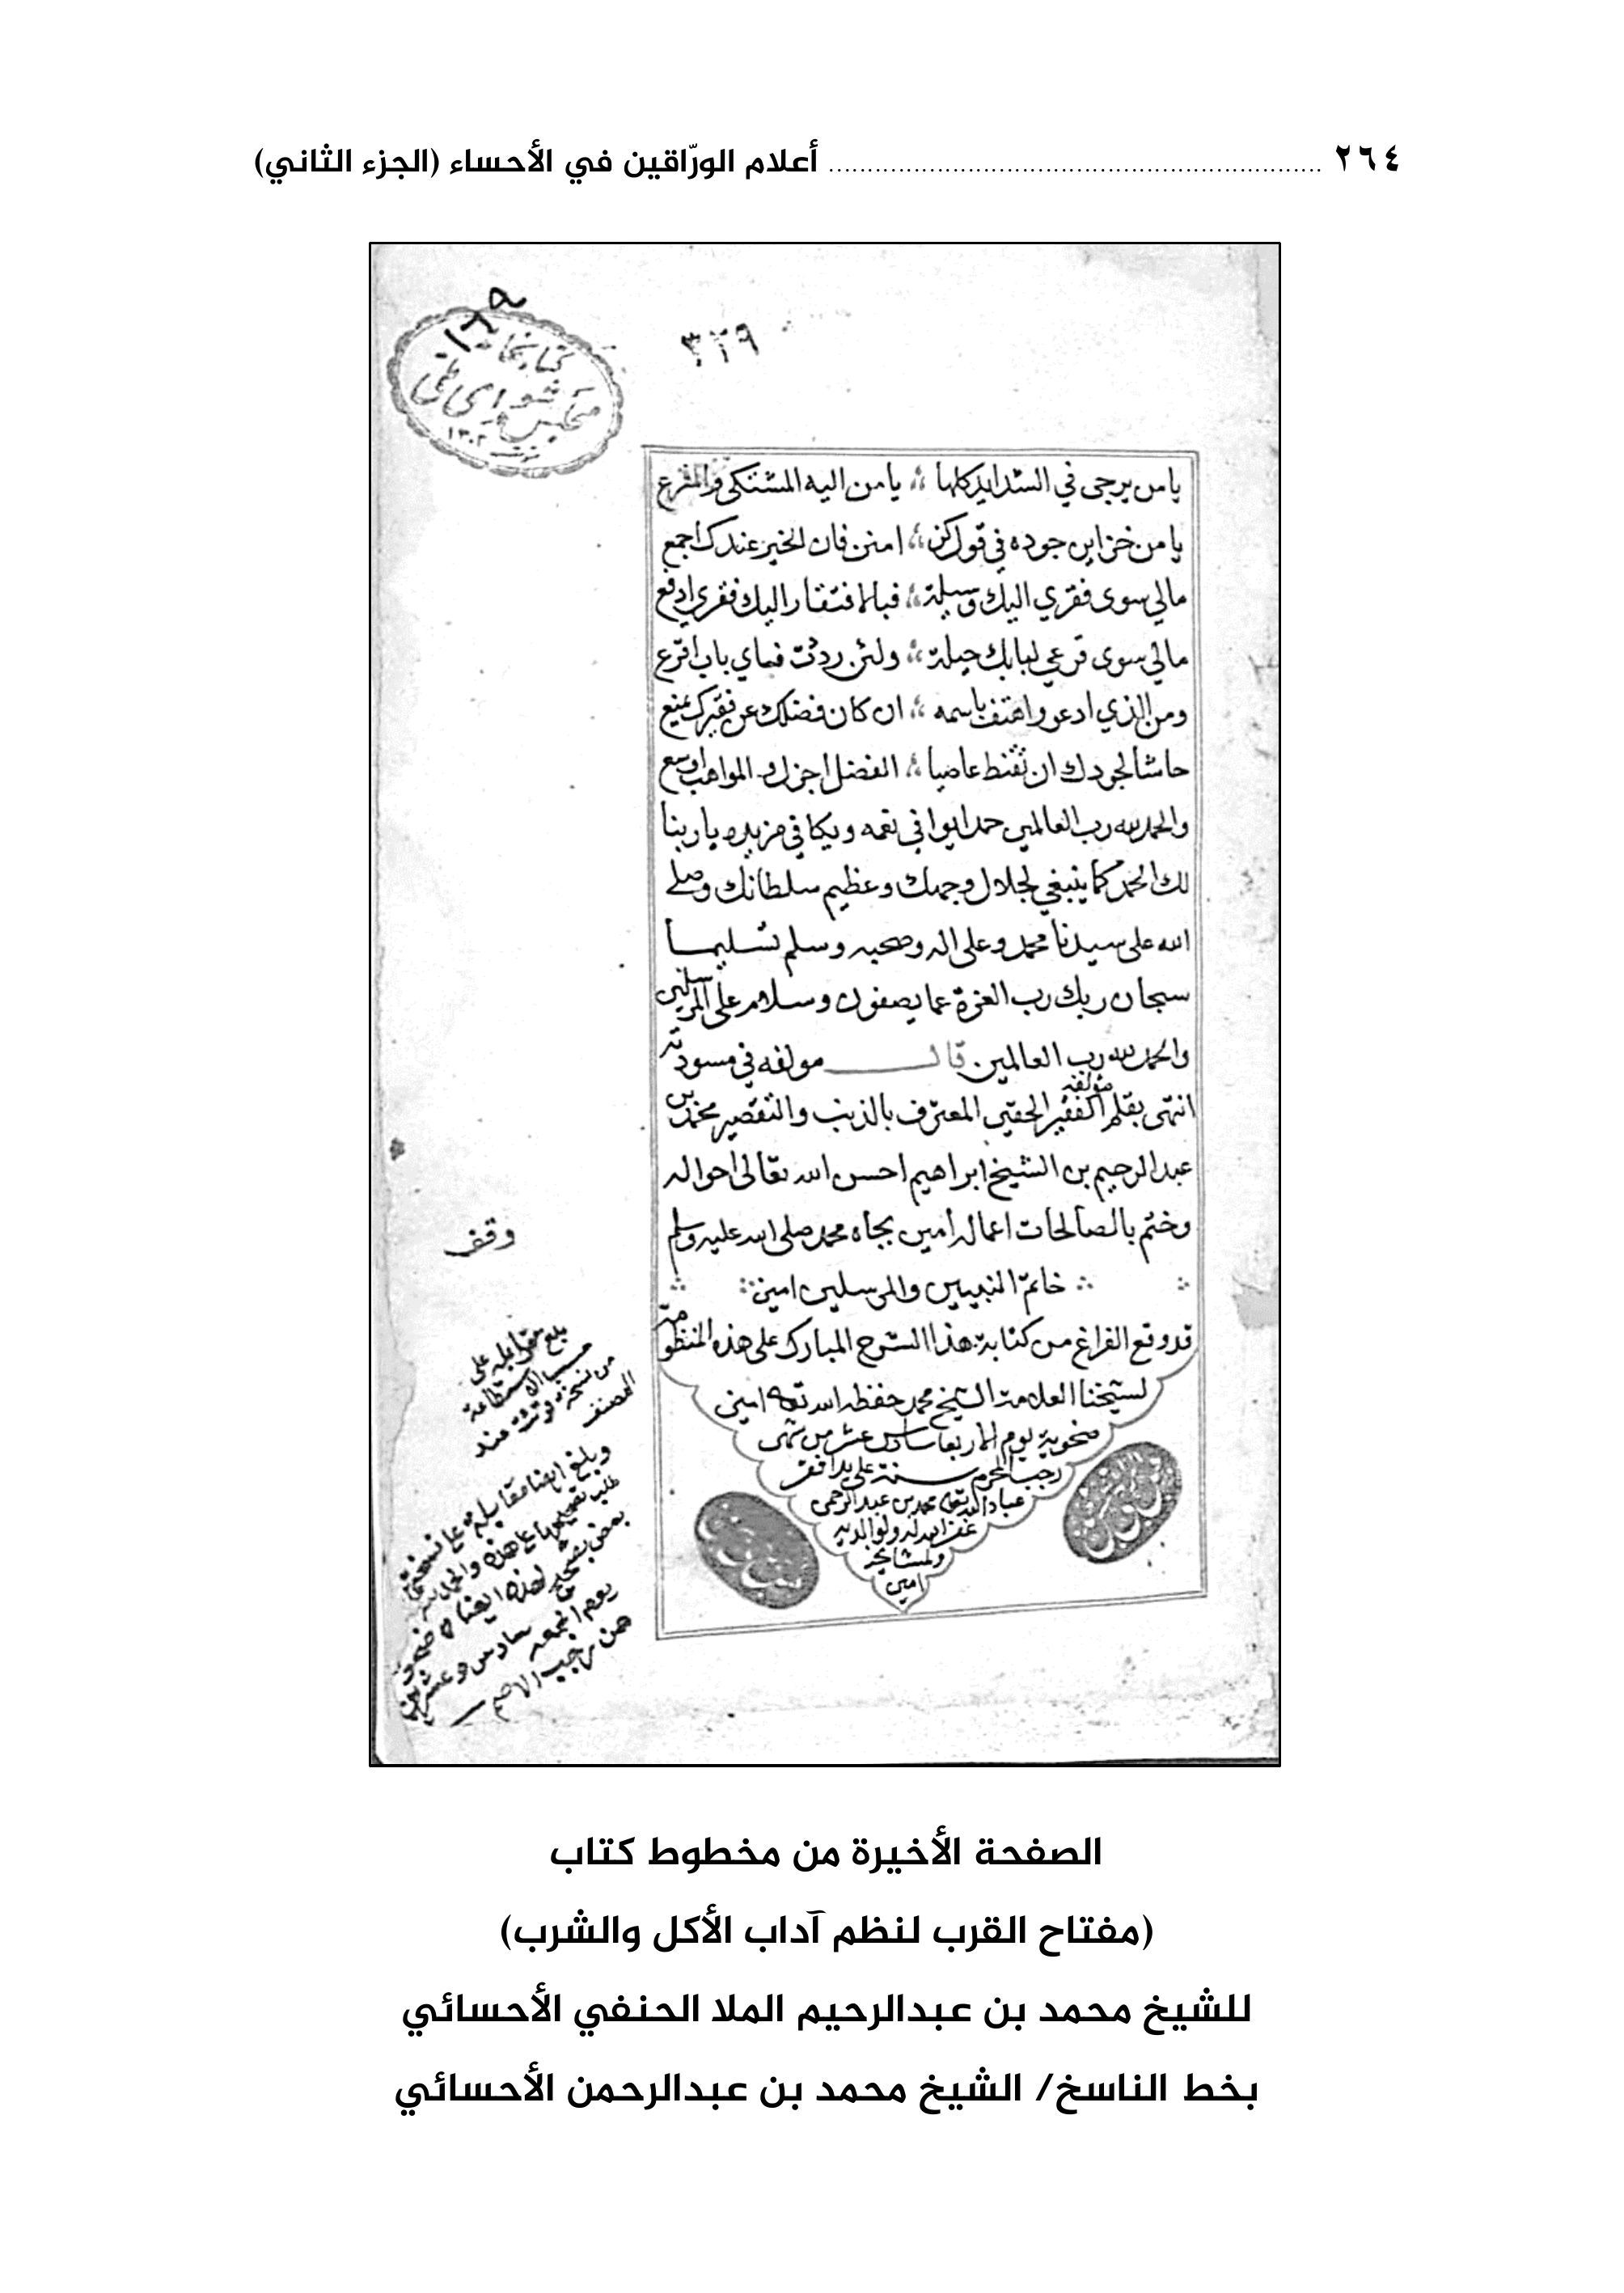 ٢٦٤ ........ أعلام الورّاقين في الأحساء (الجزء الثاني)
١٦٩
٣٢٩
كتابخانه
مجلس شورای ملی
١٣٠٢
يا من يرجى في الشدايد كلها ؛ يا من اليه المشتكى والمفزع
يا من خزاين جوده في قول كن ؛ امنن فان الخير عندك اجمع
مالي سوى فقري اليك وسيلة ؛ فبالافتقار اليك فقري ادفع
مالي سوى قرعي لبابك حيلة ؛ ولئن رددت فماي باب اقرع
ومن الذي ادعو واهتف باسمه ؛ ان كان فضلك عن فقيرك يمنع
حاشا لجودك ان تقنط عاصيا ؛ الفضل اجزل والمواهب اوسع
والحمد لله رب العالمين حمدا يوافي نعمه ويكافي مزيده يا ربنا
لك الحمد كما ينبغي لجلال وجهك وعظيم سلطانك وصلى
الله على سيدنا محمد وعلى اله وصحبه وسلم تسليما
سبحان ربك رب العزة عما يصفون وسلام على المرسلين
والحمد لله رب العالمين قال مولفه في مسودته
انتهى بقلم مؤلفه الفقير الحقير المعترف بالذنب والتقصير محمد بن
عبد الرحيم بن الشيخ ابراهيم احسن الله تعالى احواله
وختم بالصالحات اعماله امين بجاه محمد صلى الله عليه وسلم
خاتم النبيين والمرسلين امين
قد وقع الفراغ من كتابة هذا الشرح المبارك على هذه المنظومة
لشيخنا العلامة الشيخ محمد حفظه الله تعالى امين
ضحوية يوم الاربعا سادس عشر من شهر
رجب المحرم سنة على يد افقر
عباد الله تعالى محمد بن عبد الرحمن
غفر الله له ولوالديه
ولمشايخه
امين
وقف
بلغ مقابلة على
حسب الاستطاعة
من نسخة قوبلت عند
المصنف
وبلغ ايضا مقابلة على نسخة
يوم الجمعة سادس وعشرين
من رجب الاصم
الصفحة الأخيرة من مخطوط كتاب
(مفتاح القرب لنظم آداب الأكل والشرب)
للشيخ محمد بن عبدالرحيم الملا الحنفي الأحسائي
بخط الناسخ/ الشيخ محمد بن عبدالرحمن الأحسائي